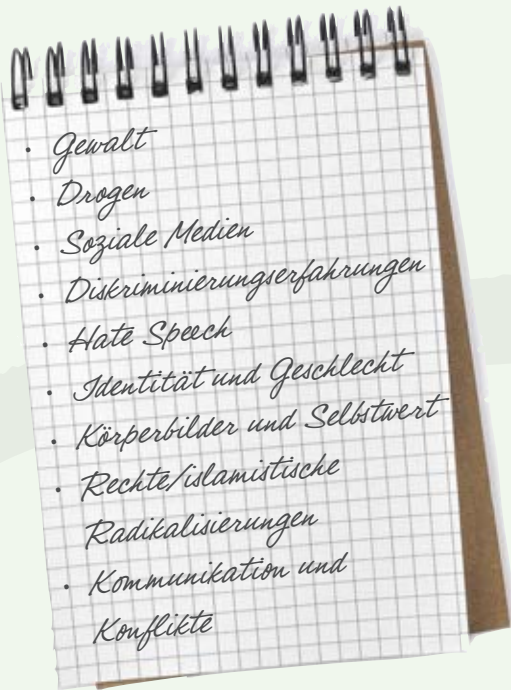 • Gewalt
• Drogen
• Soziale Medien
• Diskriminierungserfahrungen
• Hate Speech
• Identität und Geschlecht
• Körperbilder und Selbstwert
• Rechte/islamistische
Radikalisierungen
• Kommunikation und
Konflikte